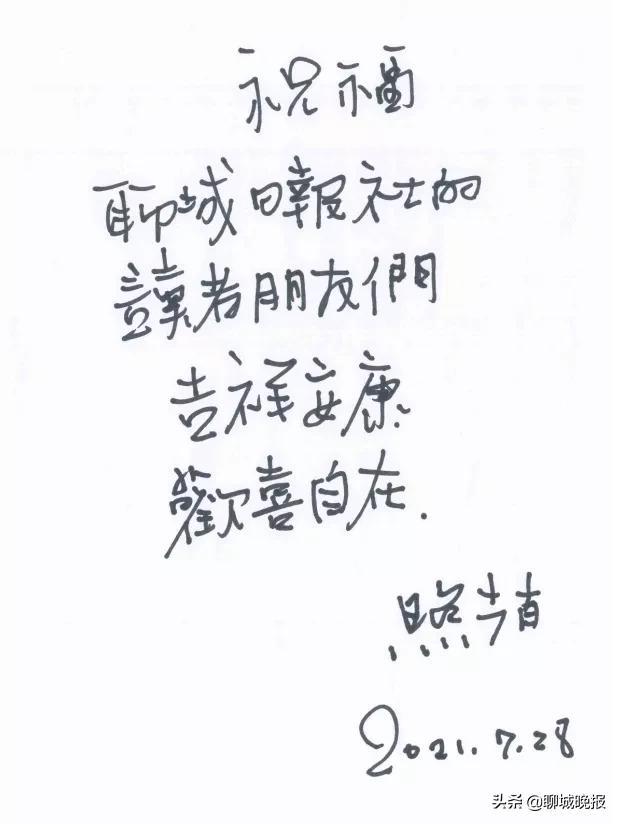 祝福
聊城日報社的
讀者朋友們
吉祥安康
歡喜自在.
照
2021.7.28
头条 @聊城晚报